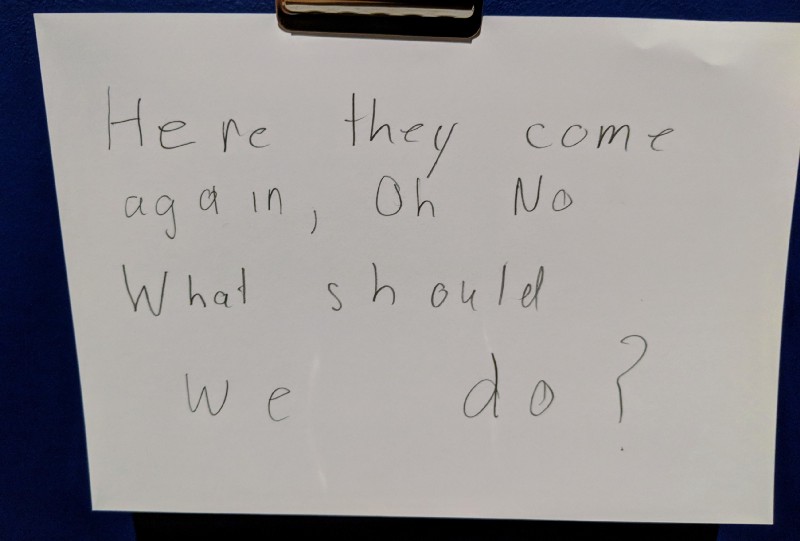 Here they come
again, Oh No
What should
we do?